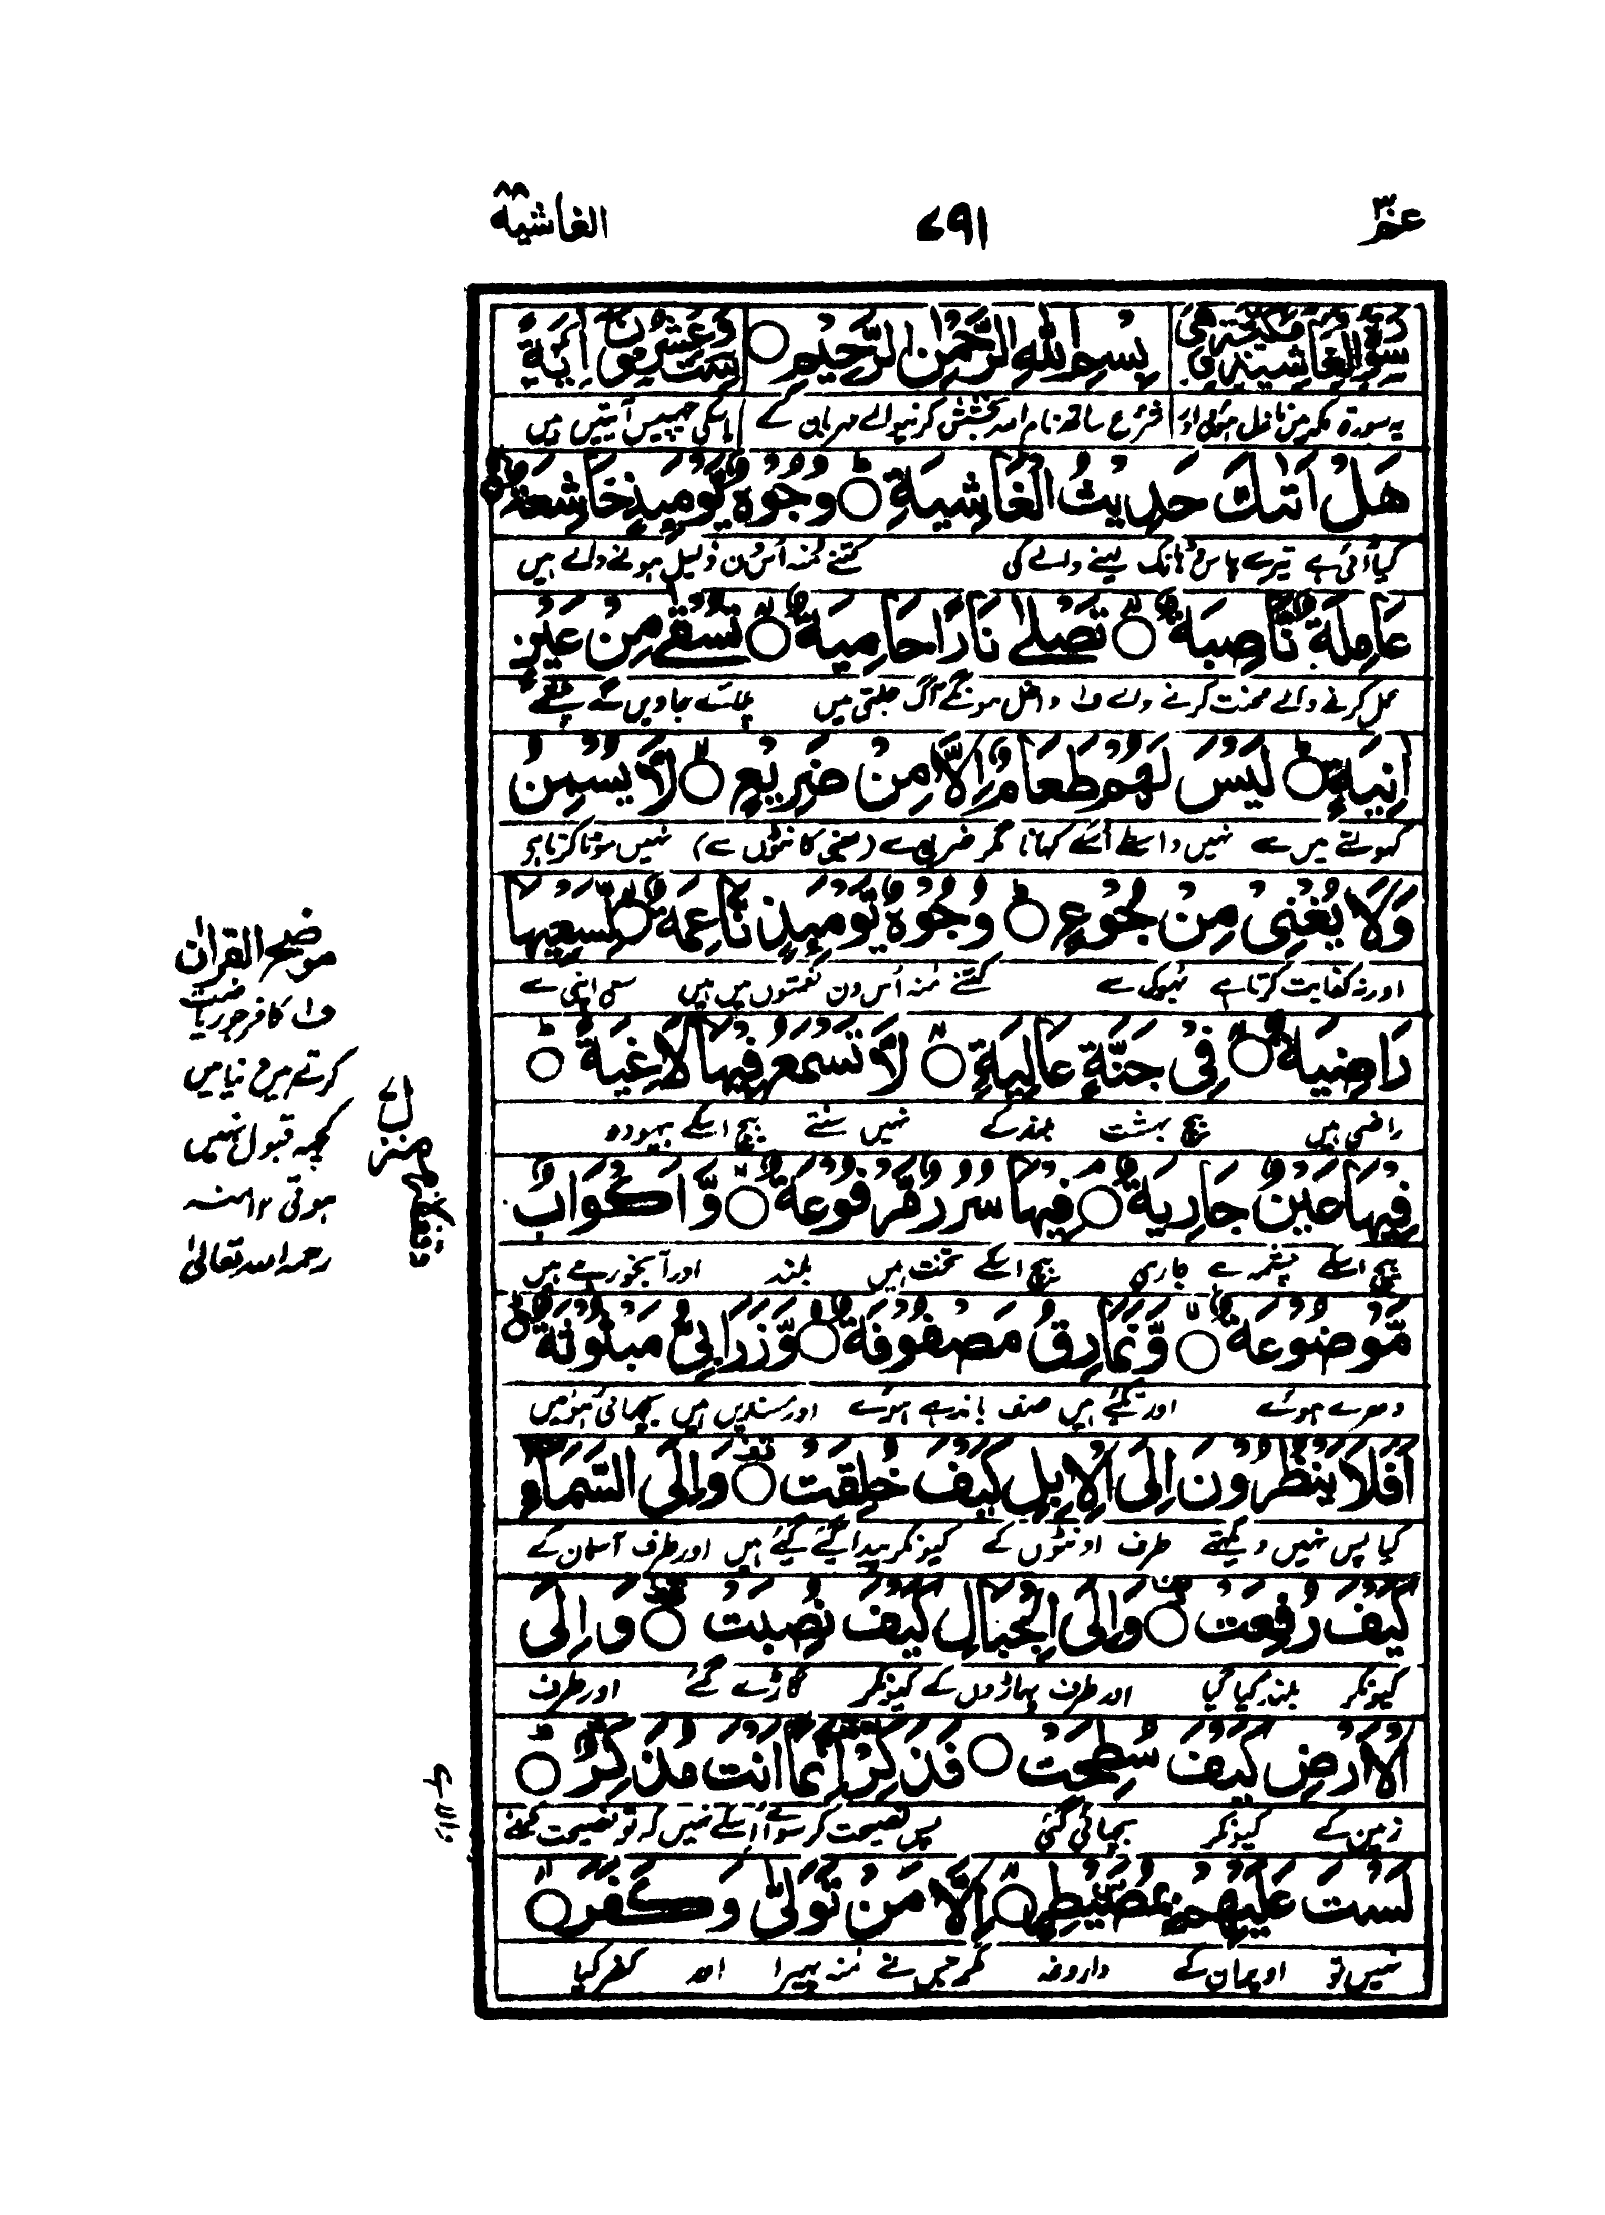 عمّ ۳۰
۷۹۱
الغاشیه ۸۸
سُوْرَةُ الْغَاشِيَةِ مَكِّيَّةٌ وَّهِيَ
بِسْمِ اللهِ الرَّحْمٰنِ الرَّحِيْمِ ○
سِتٌّ وَّعِشْرُوْنَ اٰيَةً
یہ سورة مکہ میں نازل ہوئی اور شروع ساتھ نام اللہ بخشش کرنیوالے مہربان کے اسکی چھبیس آیتیں ہیں
هَلْ اَتٰىكَ حَدِيْثُ الْغَاشِيَةِ ○ؕ وُجُوْهٌ يَّوْمَئِذٍ خَاشِعَةٌ ○ۙ
کیا آئی ہے تیرے پاس ڈہانک لینے والے کی کتنے مُنہ اُس دن ذلیل ہونے والے ہیں
عَامِلَةٌ نَّاصِبَةٌ ○ۙ تَصْلٰى نَارًا حَامِيَةً ○ۙ تُسْقٰى مِنْ عَيْنٍ
عمل کرنے والے محنت کرنے والے ف۱ داخل ہونگے آگ جلتی میں پلائے جاویں گے چشمے
اٰنِيَةٍ ○ؕ لَيْسَ لَهُمْ طَعَامٌ اِلَّا مِنْ ضَرِيْعٍ ○ۙ لَّا يُسْمِنُ
کھولتے میں سے نہیں واسطے اُنکے کھانا مگر ضریع سے (یعنی کانٹوں سے) نہیں موٹا کرتا ہے
وَلَا يُغْنِيْ مِنْ جُوْعٍ ○ؕ وُجُوْهٌ يَّوْمَئِذٍ نَّاعِمَةٌ ○ۙ لِّسَعْيِهَا
اور نہ کفایت کرتا ہے بُھوکھ سے کتنے مُنہ اُس دن نعمتوں میں ہیں سعی اپنی سے
رَاضِيَةٌ ○ۙ فِيْ جَنَّةٍ عَالِيَةٍ ○ۙ لَّا تَسْمَعُ فِيْهَا لَاغِيَةً ○ؕ
راضی ہیں بیچ بہشت بلند کے نہیں سنتے بیچ اسکے بیہودہ
فِيْهَا عَيْنٌ جَارِيَةٌ ○ۘ فِيْهَا سُرُرٌ مَّرْفُوْعَةٌ ○ۙ وَّاَكْوَابٌ
بیچ اسکے چشمہ ہے جاری بیچ اسکے تخت ہیں بلند اور آبخورے ہیں
مَّوْضُوْعَةٌ ○ۙ وَّنَمَارِقُ مَصْفُوْفَةٌ ○ۙ وَّزَرَابِيُّ مَبْثُوْثَةٌ ○ؕ
دھرے ہوئے اور تکئے ہیں صف باندھے ہوئے اور مسندیں ہیں بچھائی ہوئیں
اَفَلَا يَنْظُرُوْنَ اِلَى الْاِبِلِ كَيْفَ خُلِقَتْ ○ وَاِلَى السَّمَآءِ
کیا پس نہیں دیکھتے طرف اونٹوں کے کیونکر پیدا کیے گئے ہیں اور طرف آسمان کے
كَيْفَ رُفِعَتْ ○ وَاِلَى الْجِبَالِ كَيْفَ نُصِبَتْ ○ وَاِلَى
کیونکر بلند کیا گیا اور طرف پہاڑوں کے کیونکر گاڑے گئے اور طرف
الْاَرْضِ كَيْفَ سُطِحَتْ ○ فَذَكِّرْ اِنَّمَآ اَنْتَ مُذَكِّرٌ ○ؕ
زمین کے کیونکر بچھائی گئی پس نصیحت کر سوائے اُسکے نہیں کہ تو نصیحت کرنیوالا
لَسْتَ عَلَيْهِمْ بِمُصَۜيْطِرٍ ○ۙ اِلَّا مَنْ تَوَلّٰى وَكَفَرَ ○ۙ
نہیں تو اوپر ان کے داروغہ مگر جس نے مُنہ پھیرا اور کفر کیا
موضح القرآن
ف۱ کافر جو ریاضت
کرتے ہیں دنیا میں
کچھ قبول نہیں
ہوتی ۱۲ منہ
رحمہ اللہ تعالیٰ
منزل